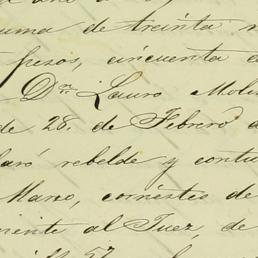 uma de treinta
pesos, cincuenta
Dn. Lauro Moli
de 28. de Febrero
laró rebelde y contu
Marzo, corrientes de
mente al Juez, de